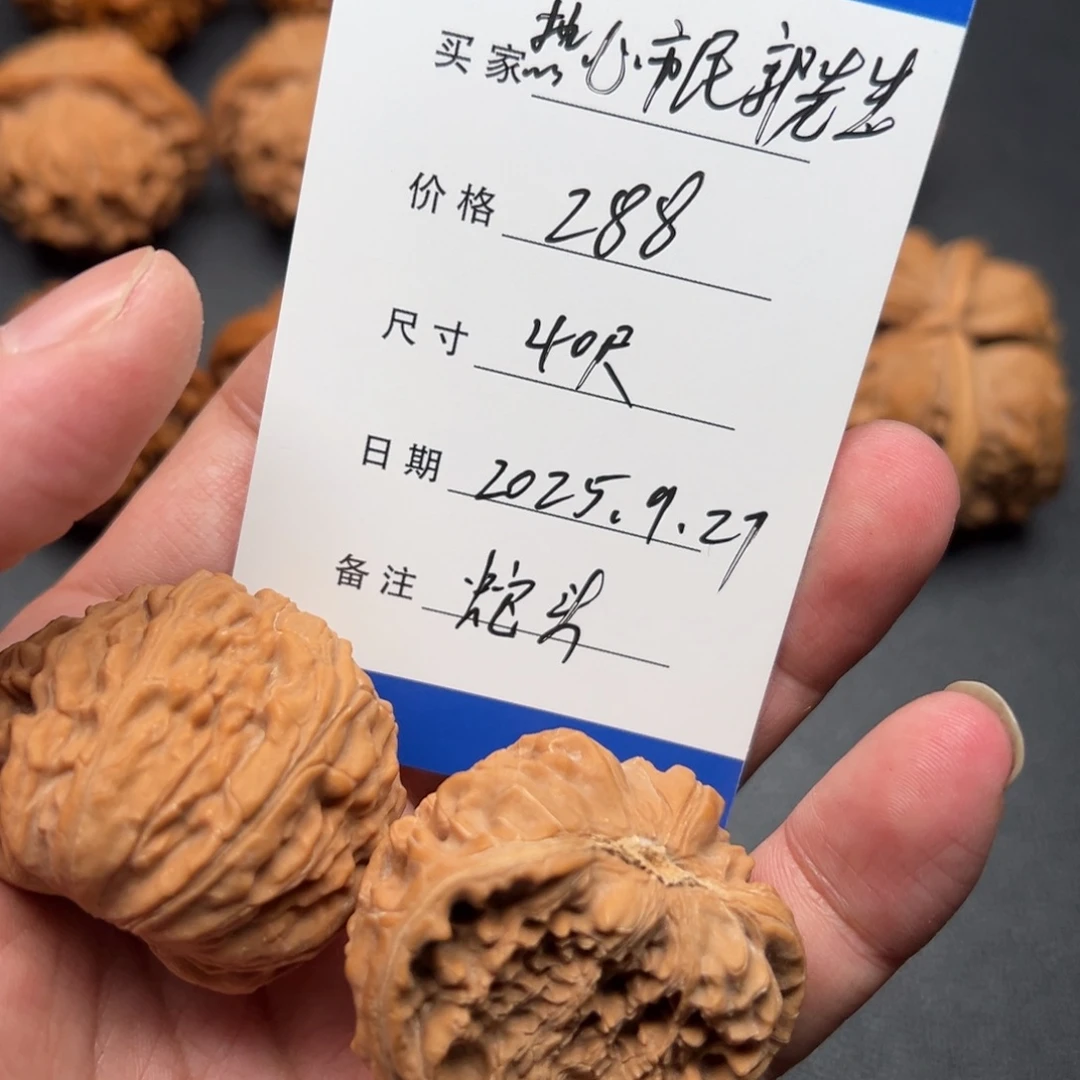 买家 热心市民郭先生
价格 288
尺寸 40尺
日期 2025.9.27
备注 蛇头